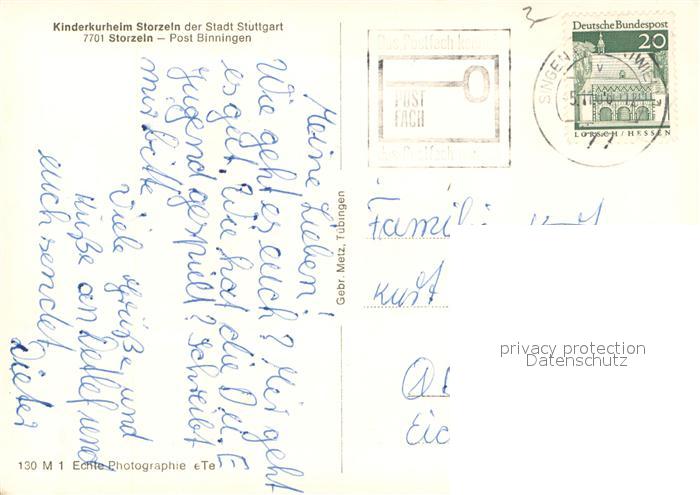 Kinderkurheim Storzeln der Stadt Stuttgart
7701 Storzeln – Post Binningen
Meine Lieben!
Wie geht es euch? Mir geht
es gut. Wie hat die D u. E
Jugend gespielt? Schreibt
mir bitte
Viele Grüße und
Küße an Detlef und
euch sendet
Dieter
130 M 1 Echte Photographie
Gebr. Metz, Tübingen
POST
FACH
SINGEN
Deutsche Bundespost
20
LORSCH/HESSEN
Famili
Kurt
Eic
privacy protection
Datenschutz